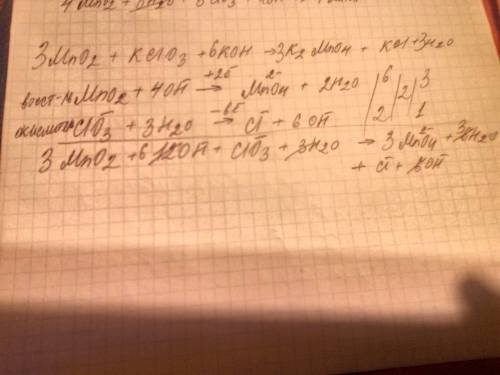 3MnO₂ + KClO₃ + 6KOH → 3K₂MnO₄ + KCl + 3H₂O
восст-ль MnO₂ + 4OH⁻ +2e→ MnO₄²⁻ + 2H₂O | 6 | 2 | 3
ClO₃⁻ + 3H₂O -6e→ Cl⁻ + 6OH⁻ | 2 | | 1
3MnO₂ + 6 12OH⁻ + ClO₃⁻ + 3H₂O → 3MnO₄²⁻ + 3 6H₂O
+ Cl⁻ + 6OH⁻